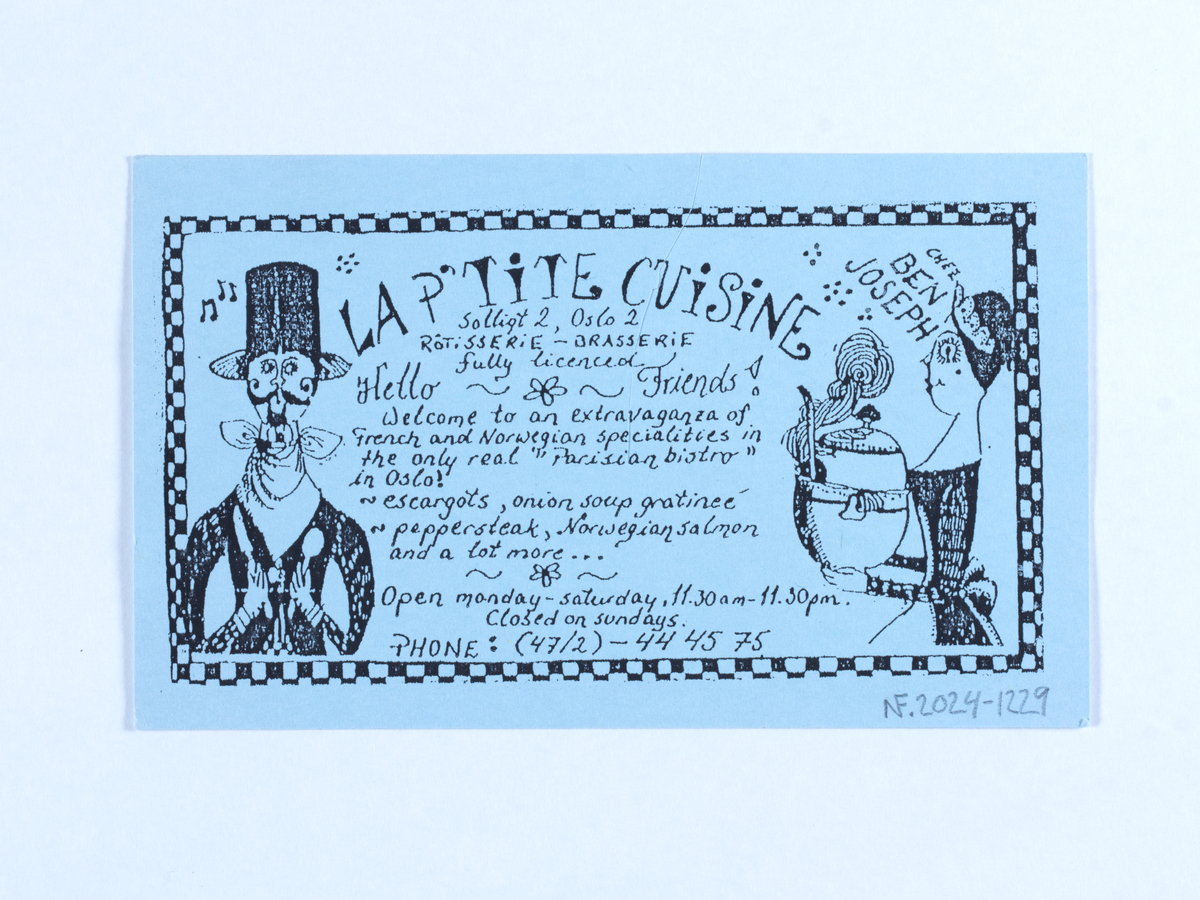 LA P'TITE CUISINE
CHEZ
BEN
JOSEPH
Solligt 2, Oslo 2
RÔTISSERIE – BRASSERIE
fully licenced
Hello ~ ~ Friends!
Welcome to an extravaganza of
French and Norwegian specialities in
the only real "Parisian bistro"
in Oslo!
~ escargots, onion soup gratineé
~ peppersteak, Norwegian salmon
and a lot more...
Open monday-saturday, 11.30am-11.30pm.
Closed on sundays.
PHONE: (47/2) – 44 45 75
NF.2024-1229